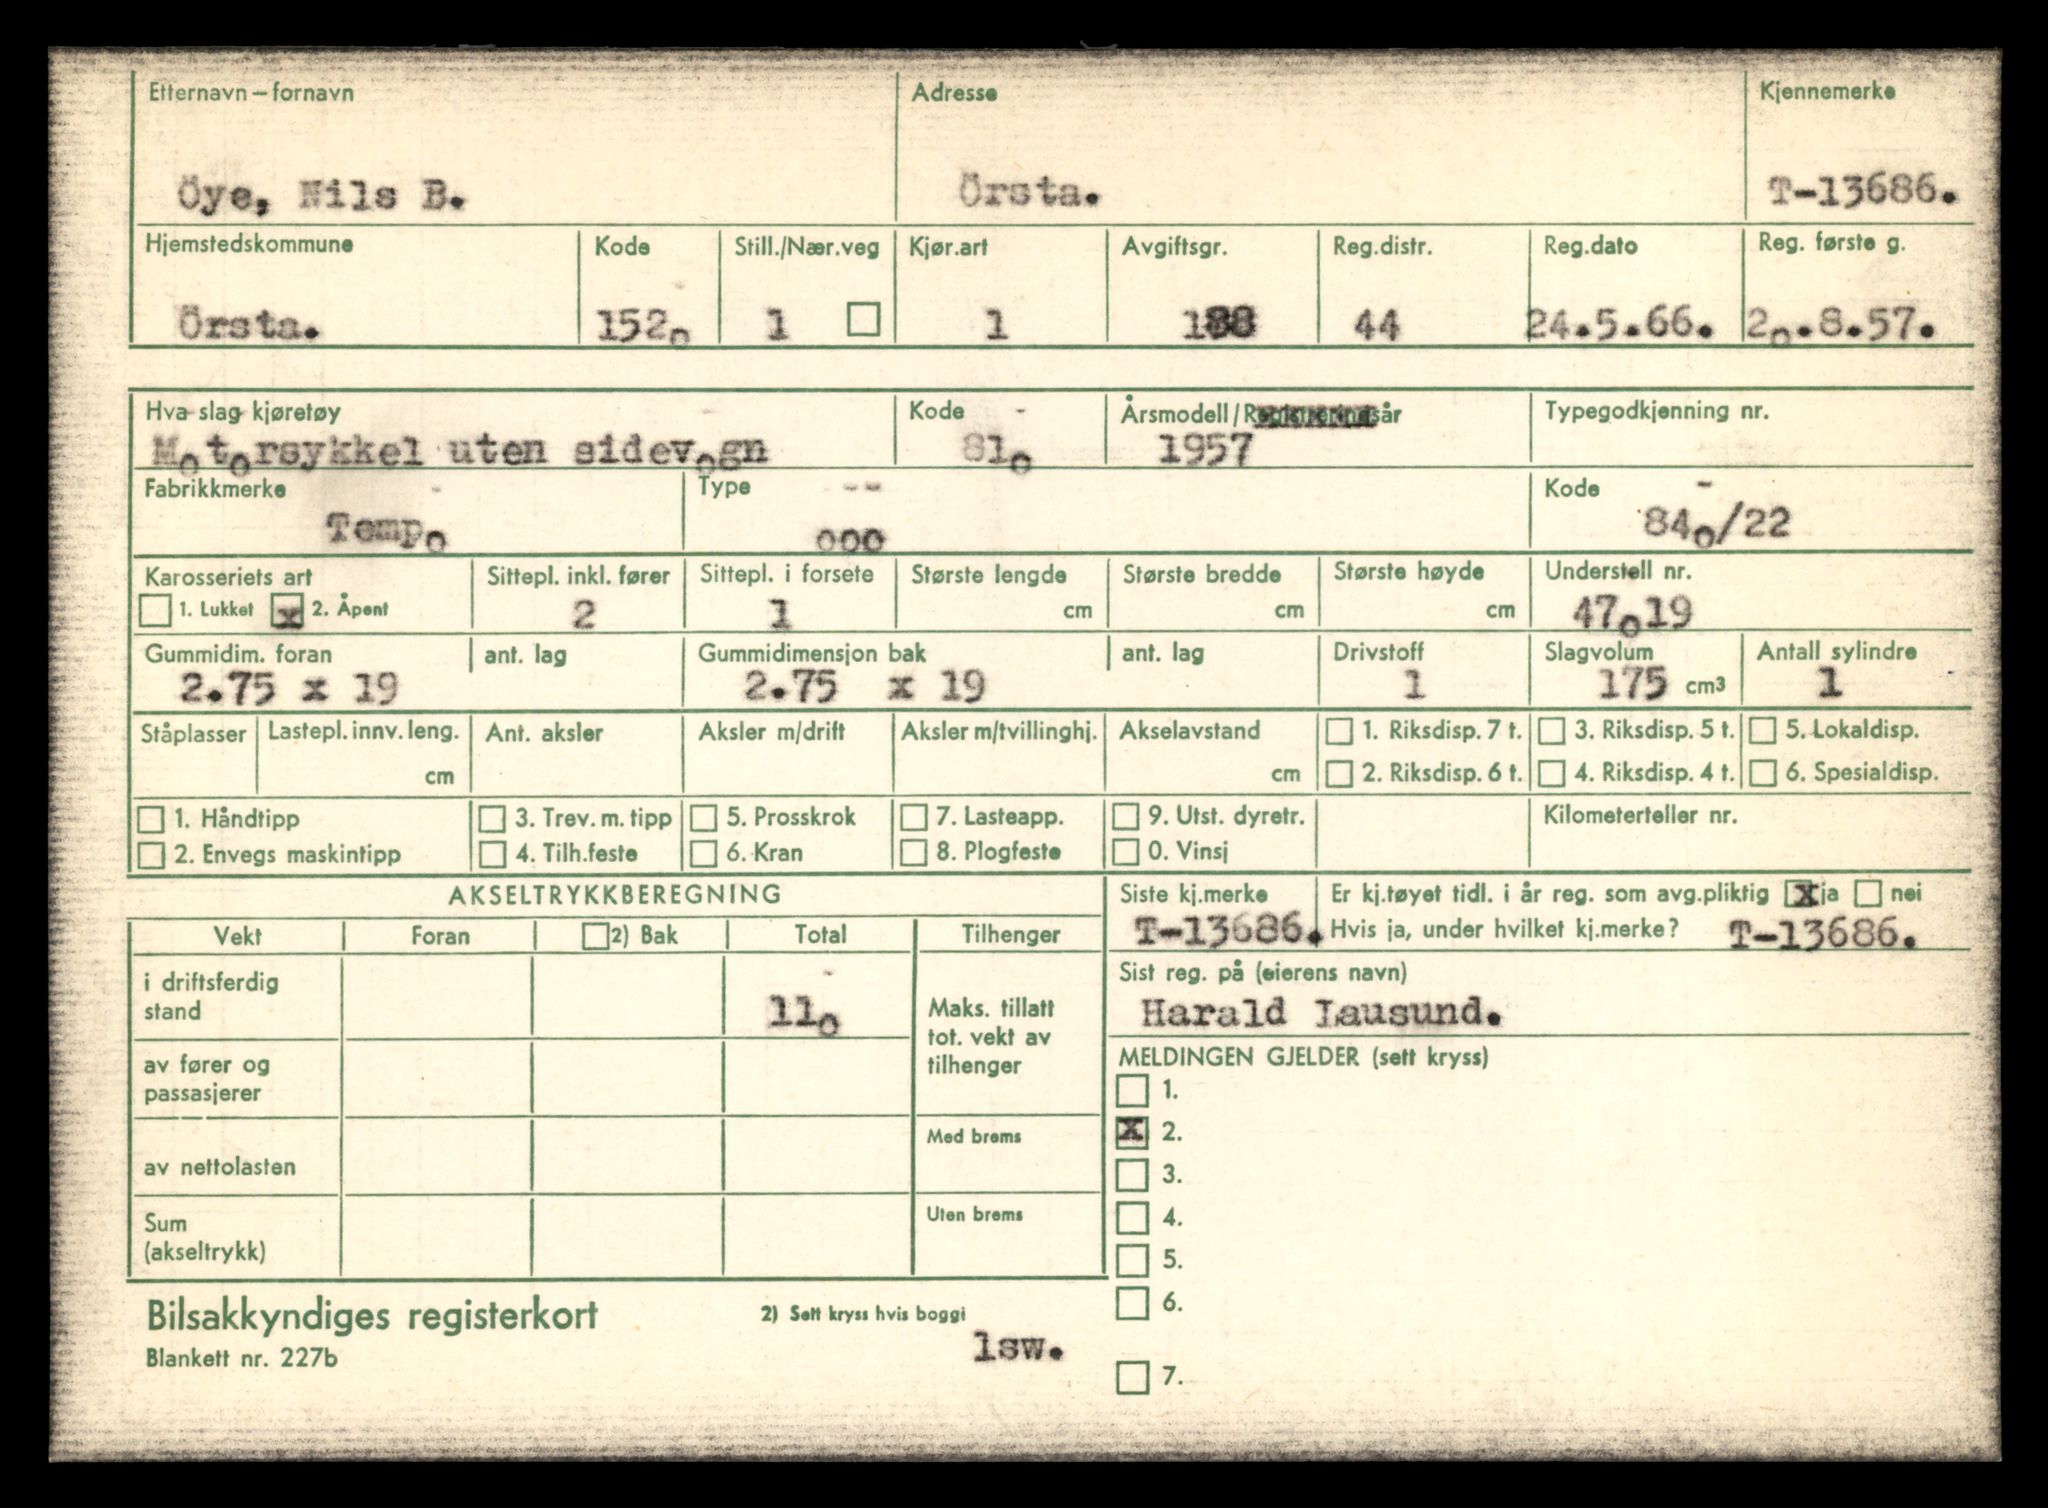 Etternavn – fornavn Adresse Kjennemerke
Öye, Nils B. Örsta. T-13686.
Hjemstedskommune Kode Still./Nær.veg Kjør.art Avgiftsgr. Reg.distr. Reg.dato Reg. første g.
Örsta. 1520 1 1 44 24.5.66. 20.8.57.
Hva slag kjøretøy Kode Årsmodell/Registreringsår Typegodkjenning nr.
Motorsykkel uten sidevogn 810 1957
Fabrikkmerke Type Kode
Tempo 000 840/22
Karosseriets art Sittepl. inkl. fører Sittepl. i forsete Største lengde Største bredde Største høyde Understell nr.
1. Lukket x 2. Åpent 2 1 cm cm cm 47019
Gummidim. foran ant. lag Gummidimensjon bak ant. lag Drivstoff Slagvolum Antall sylindre
2.75 x 19 2.75 x 19 1 175 cm3 1
Ståplasser Lastepl. innv. leng. Ant. aksler Aksler m/drift Aksler m/tvillinghj. Akselavstand 1. Riksdisp. 7 t. 3. Riksdisp. 5 t. 5. Lokaldisp.
cm cm 2. Riksdisp. 6 t. 4. Riksdisp. 4 t. 6. Spesialdisp.
1. Håndtipp 3. Trev. m. tipp 5. Prosskrok 7. Lasteapp. 9. Utst. dyretr. Kilometerteller nr.
2. Envegs maskintipp 4. Tilh.feste 6. Kran 8. Plogfeste 0. Vinsj
AKSELTRYKKBEREGNING Siste kj.merke Er kj.tøyet tidl. i år reg. som avg.pliktig x ja nei
T-13686. Hvis ja, under hvilket kj.merke? T-13686.
Vekt Foran 2) Bak Total Tilhenger
Sist reg. på (eierens navn)
Harald Lausund.
i driftsferdig
stand 110
Maks. tillatt
tot. vekt av
tilhenger
MELDINGEN GJELDER (sett kryss)
av fører og
passasjerer
1.
x 2.
Med brems
av nettolasten
3.
4.
Uten brems
Sum
(akseltrykk)
5.
6.
Bilsakkyndiges registerkort 2) Sett kryss hvis boggi
lsw.
Blankett nr. 227b
7.